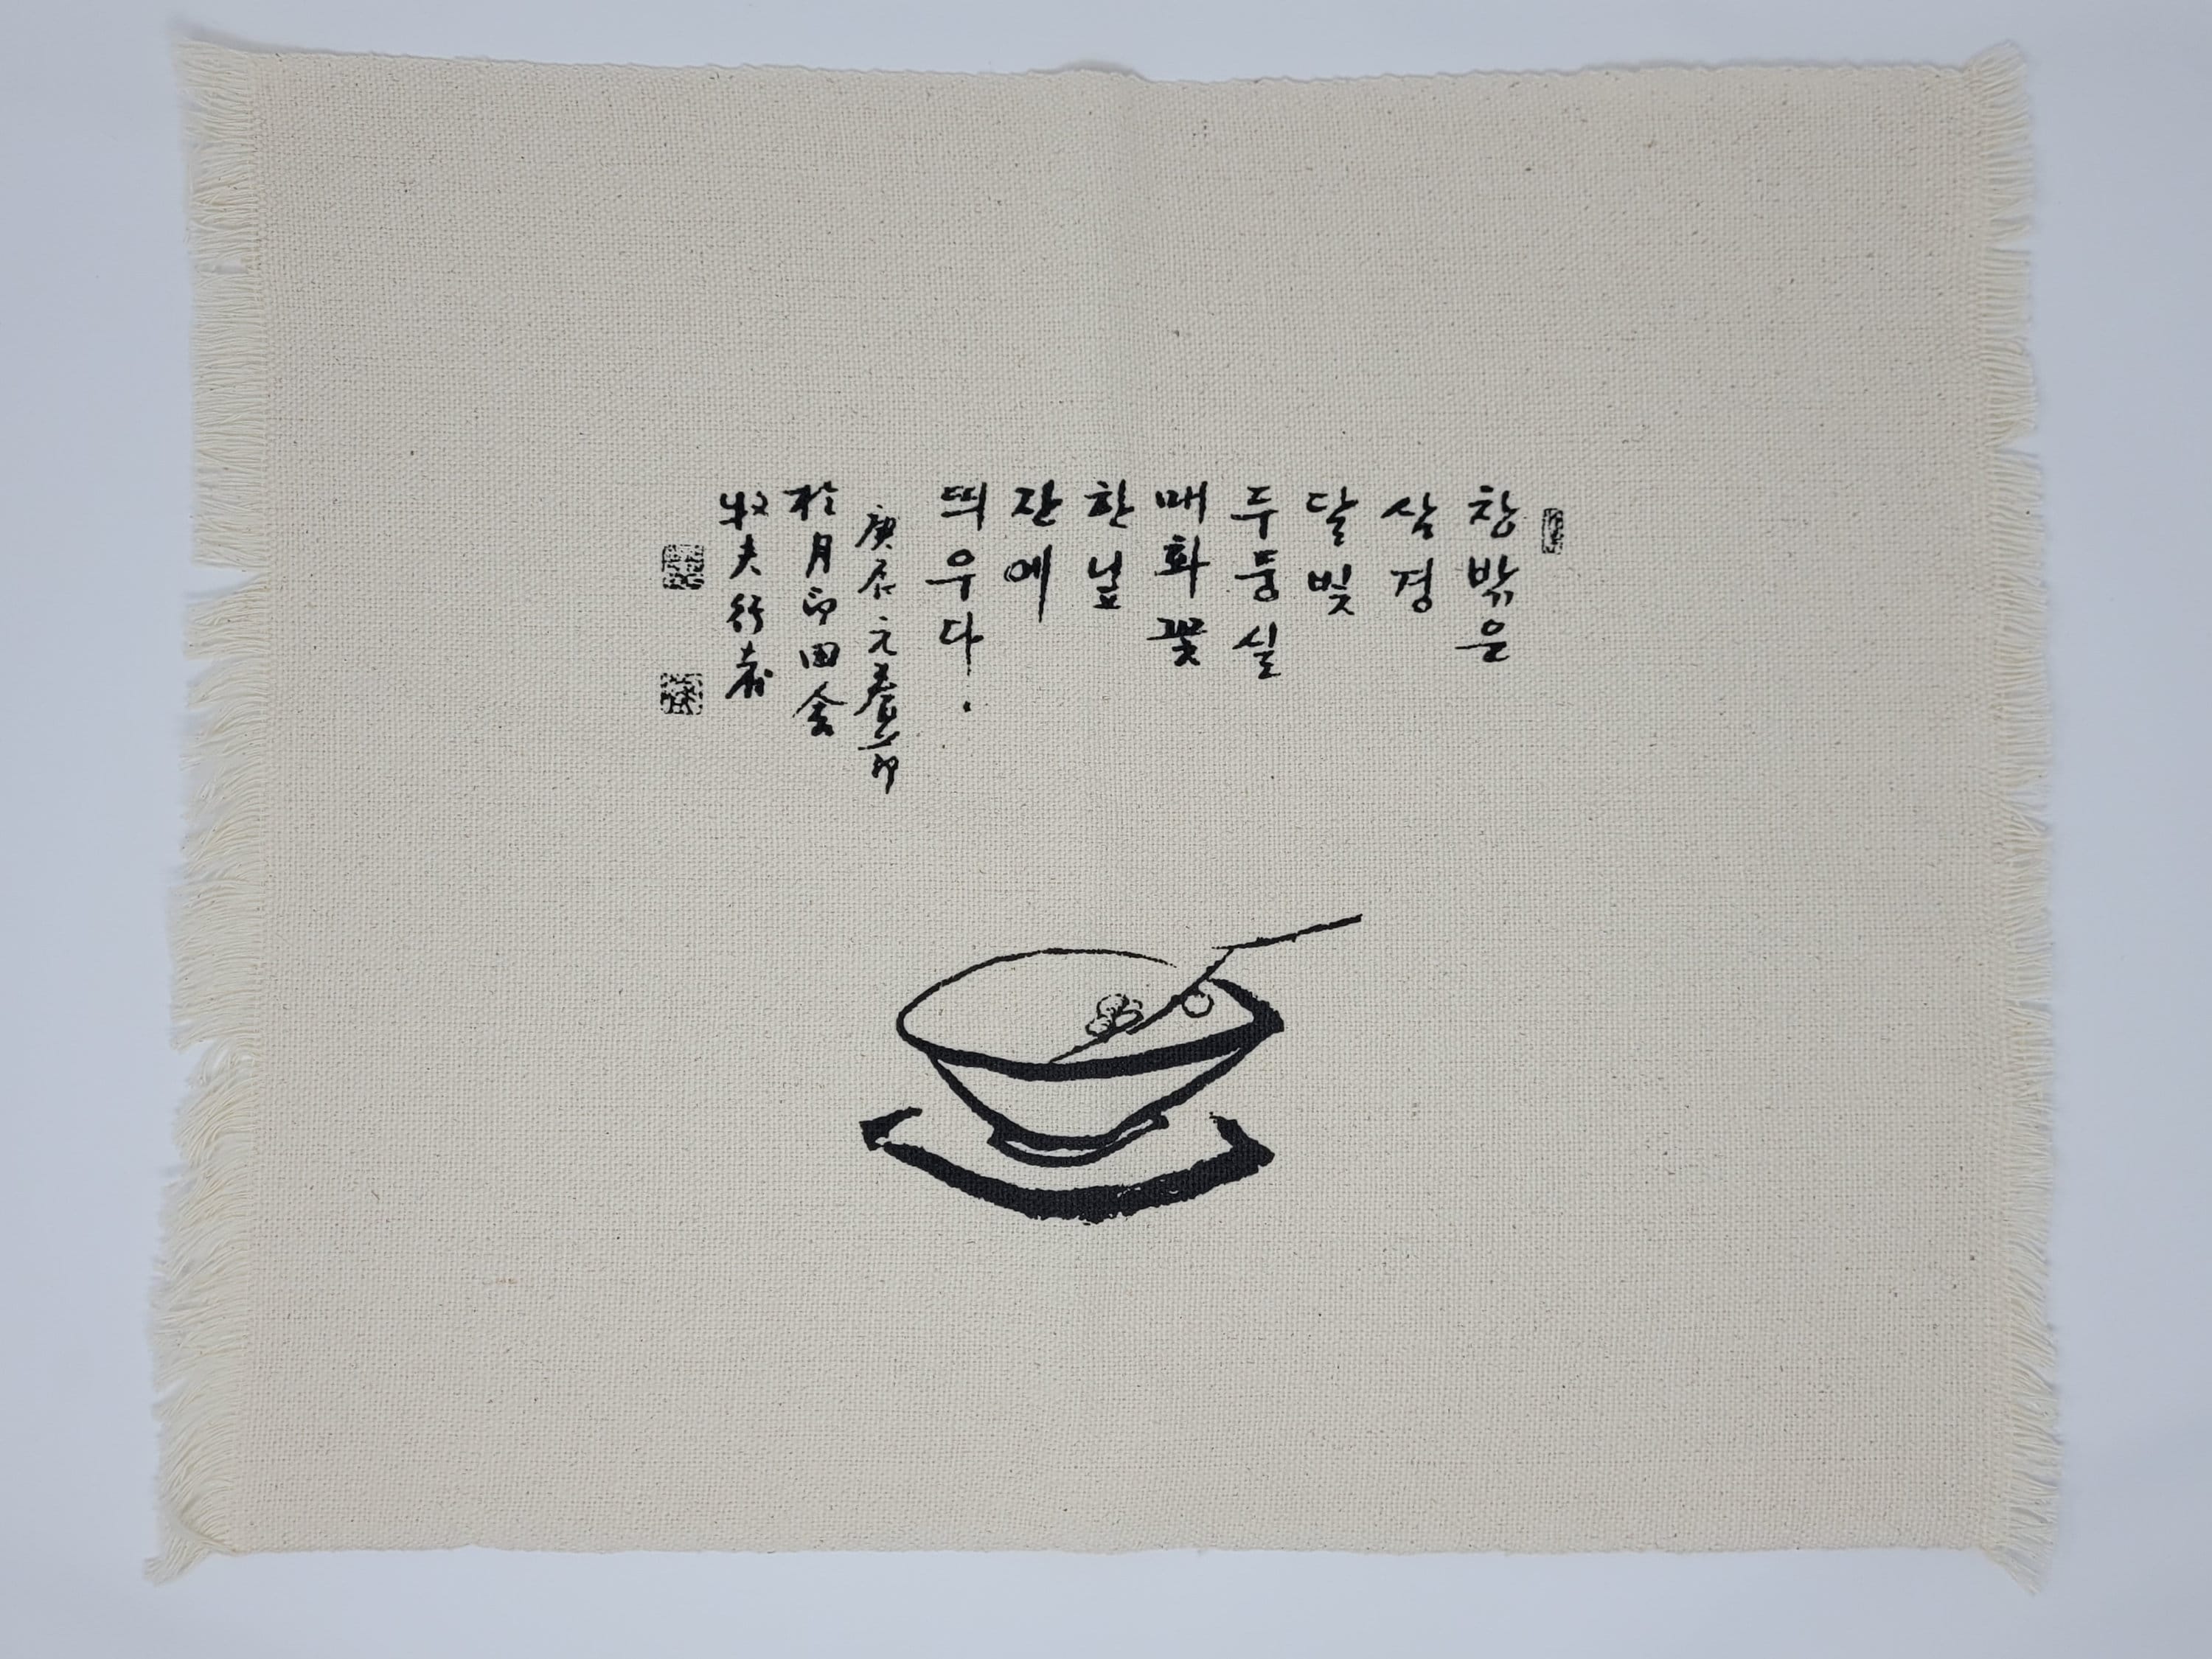 창밖은
삼경
달빛
두둥실
매화꽃
한닢
잔에
띄우다.
庚辰元春節
於月印田舍
牧夫行者